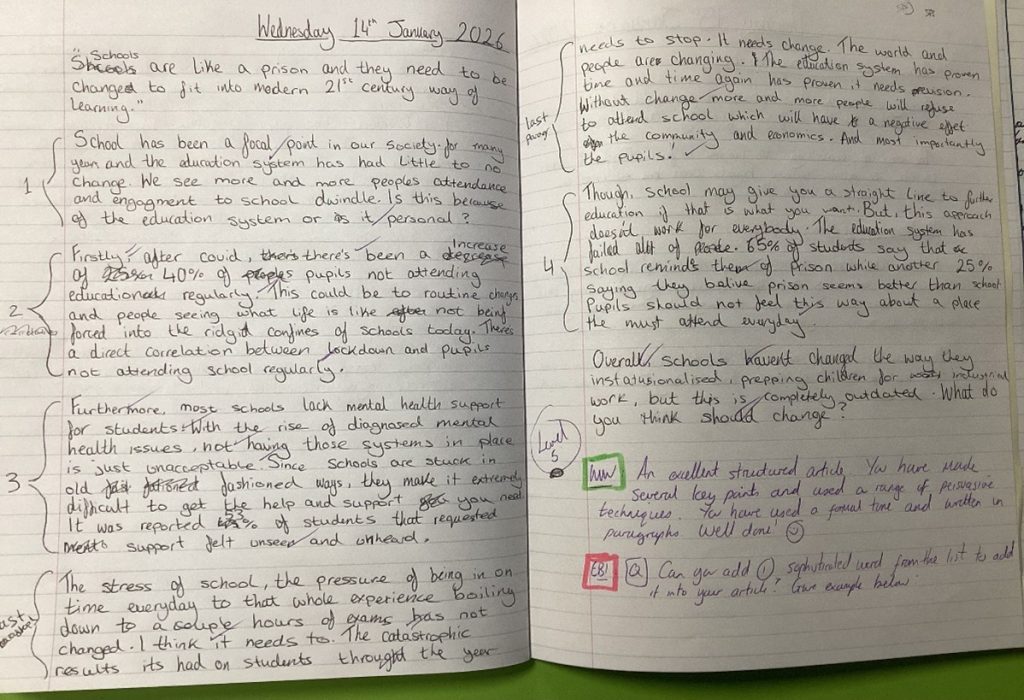 Wednesday 14th January 2026
Schools
"Schools are like a prison and they need to be
changed to fit into modern 21st century way of
learning."
1
School has been a focal point in our society for many
year and the education system has had little to no
change. We see more and more peoples attendance
and engagment to school dwindle. Is this because
of the education system or is it personal?
Increase
2
Firstly, after covid, there's there's been a decrease
of 40% of peoples pupils not attending
education regularly. This could be to routine changes
and people seeing what life is like after not being
forced into the ridgid confines of schools today. Theres
a direct correlation between lockdown and pupils
not attending school regularly.
3
Furthermore, most schools lack mental health support
for students. With the rise of diagnosed mental
health issues, not having those systems in place
is just unacceptable. Since schools are stuck in
old fashioned ways, they make it extremely
difficult to get the help and support you need.
It was reported 53% of students that requested
support felt unseen and unheard.
last
The stress of school, the pressure of being in on
time everyday to that whole experience boiling
down to a couple hours of exams has not
changed. I think it needs to. The catastrophic
results its had on students throught the year
last
needs to stop. It needs change. The world and
people are changing. The education system has proven
time and time again has proven it needs revision.
Without change more and more people will refuse
to attend school which will have a negative effet
on the community and economics. And most importantly
the pupils!
4
Though, school may give you a straight line to further
education if that is what you want. But, this approach
doesn't work for everybody. The education system has
failed alot of people. 65% of students say that
school reminds them of prison while another 25%
saying they belive prison seems better than school
Pupils should not feel this way about a place
the must attend everyday.
Overall, schools havent changed the way they
instatusionalised, prepping children for industrial
work, but this is completely outdated. What do
you think should change?
Level
5
WWW An excellent structured article. You have made
several key points and used a range of persuasive
techniques. You have used a formal tone and written in
paragraphs. Well done!
EBI Q Can you add 1 sophisticated word from the list to add
it into your article? Give example below.